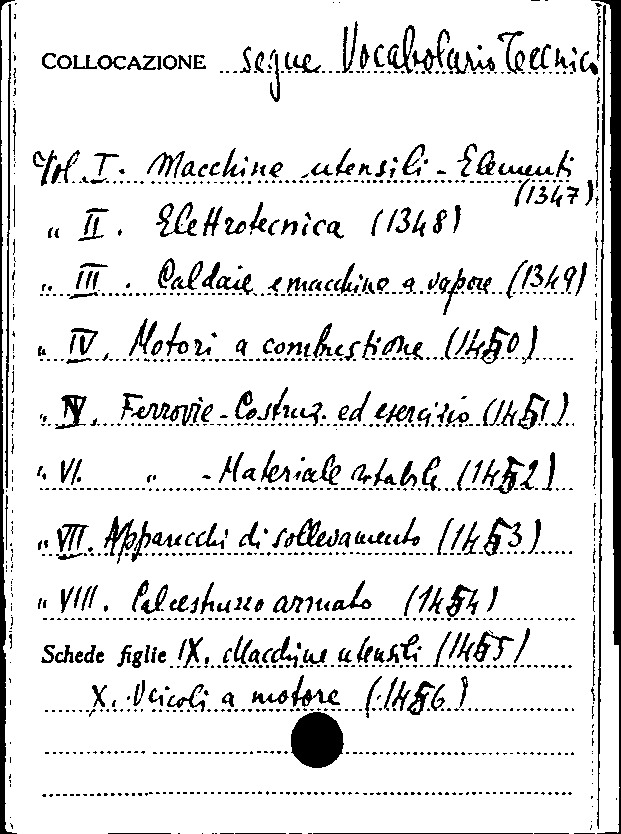 COLLOCAZIONE segue Vocabolario Tecnico
Vol. I. Macchine utensili - Elementi
(1347)
" II. Elettrotecnica (1348)
" III. Caldaie e macchine a vapore (1349)
" IV. Motori a combustione (1450)
" V. Ferrovie - Costruz. ed esercizio (1451)
" VI. " - Materiale rotabile (1452)
" VII. Apparecchi di sollevamento (1453)
" VIII. Calcestruzzo armato (1454)
Schede figlie IX. Macchine utensili (1455)
X. Veicoli a motore (1456)